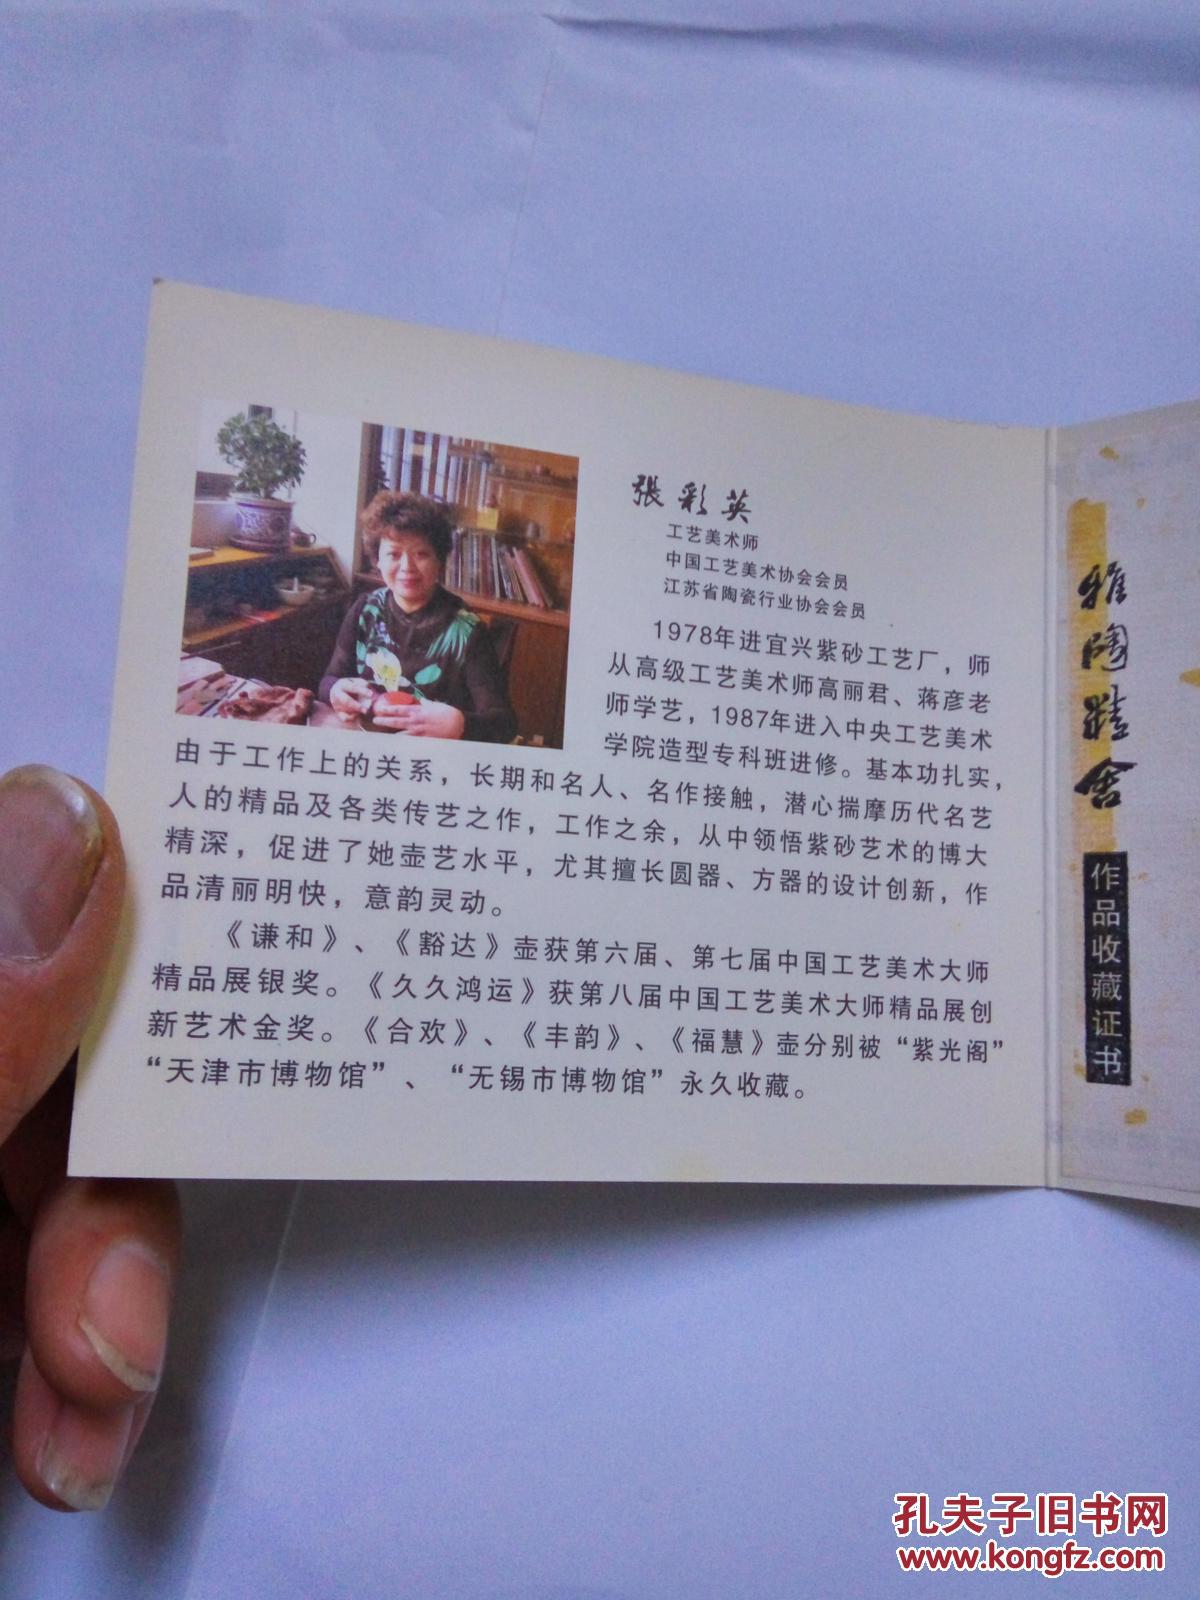 張彩英
工艺美术师
中国工艺美术协会会员
江苏省陶瓷行业协会会员
1978年进宜兴紫砂工艺厂，师
从高级工艺美术师高丽君、蒋彦老
师学艺，1987年进入中央工艺美术
学院造型专科班进修。基本功扎实，
由于工作上的关系，长期和名人、名作接触，潜心揣摩历代名艺
人的精品及各类传艺之作，工作之余，从中领悟紫砂艺术的博大
精深，促进了她壶艺水平，尤其擅长圆器、方器的设计创新，作
品清丽明快，意韵灵动。
《谦和》、《豁达》壶获第六届、第七届中国工艺美术大师
精品展银奖。《久久鸿运》获第八届中国工艺美术大师精品展创
新艺术金奖。《合欢》、《丰韵》、《福慧》壶分别被“紫光阁”
“天津市博物馆”、“无锡市博物馆”永久收藏。
雅陶精舍
作品收藏证书
孔夫子旧书网
www.kongfz.com